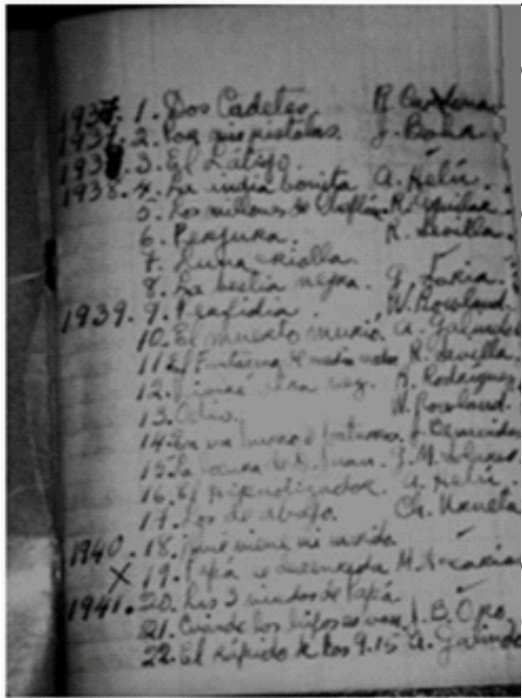 1937. 1. Dos Cadetes. R. Cardona.
1937. 2. Por mis pistolas. J. Bohr.
1938. 3. El Látigo.
1938. 4. La india bonita A. Helú.
5. Los millones de Chaflán. R. Aguilar.
6. Perjura. R. Sevilla.
7. Luna criolla.
8. La bestia negra. G. Soria.
1939. 9. Perfidia. W. Rowland.
10. El muerto murió. A. Galindo
11. El Fantasma de media noche R. Sevilla.
12. otra vez. R. Rodríguez
13. Odio. W. Rowland.
14. En un burro 3 baturros. J. Benavides
15. La locura de D. Juan. G. M. Solares
16. El hipnotizador. A. Helú.
17. Los de abajo. Ch. Urueta
1940. 18. ¡Que viene mi marido
X 19. Papá se desenreda M. Zacarías
1941. 20. Las 3 viudas de Papá.
21. Cuando los hijos se van. J. B. Oro.
22. El rápido de las 9.15 A. Galindo